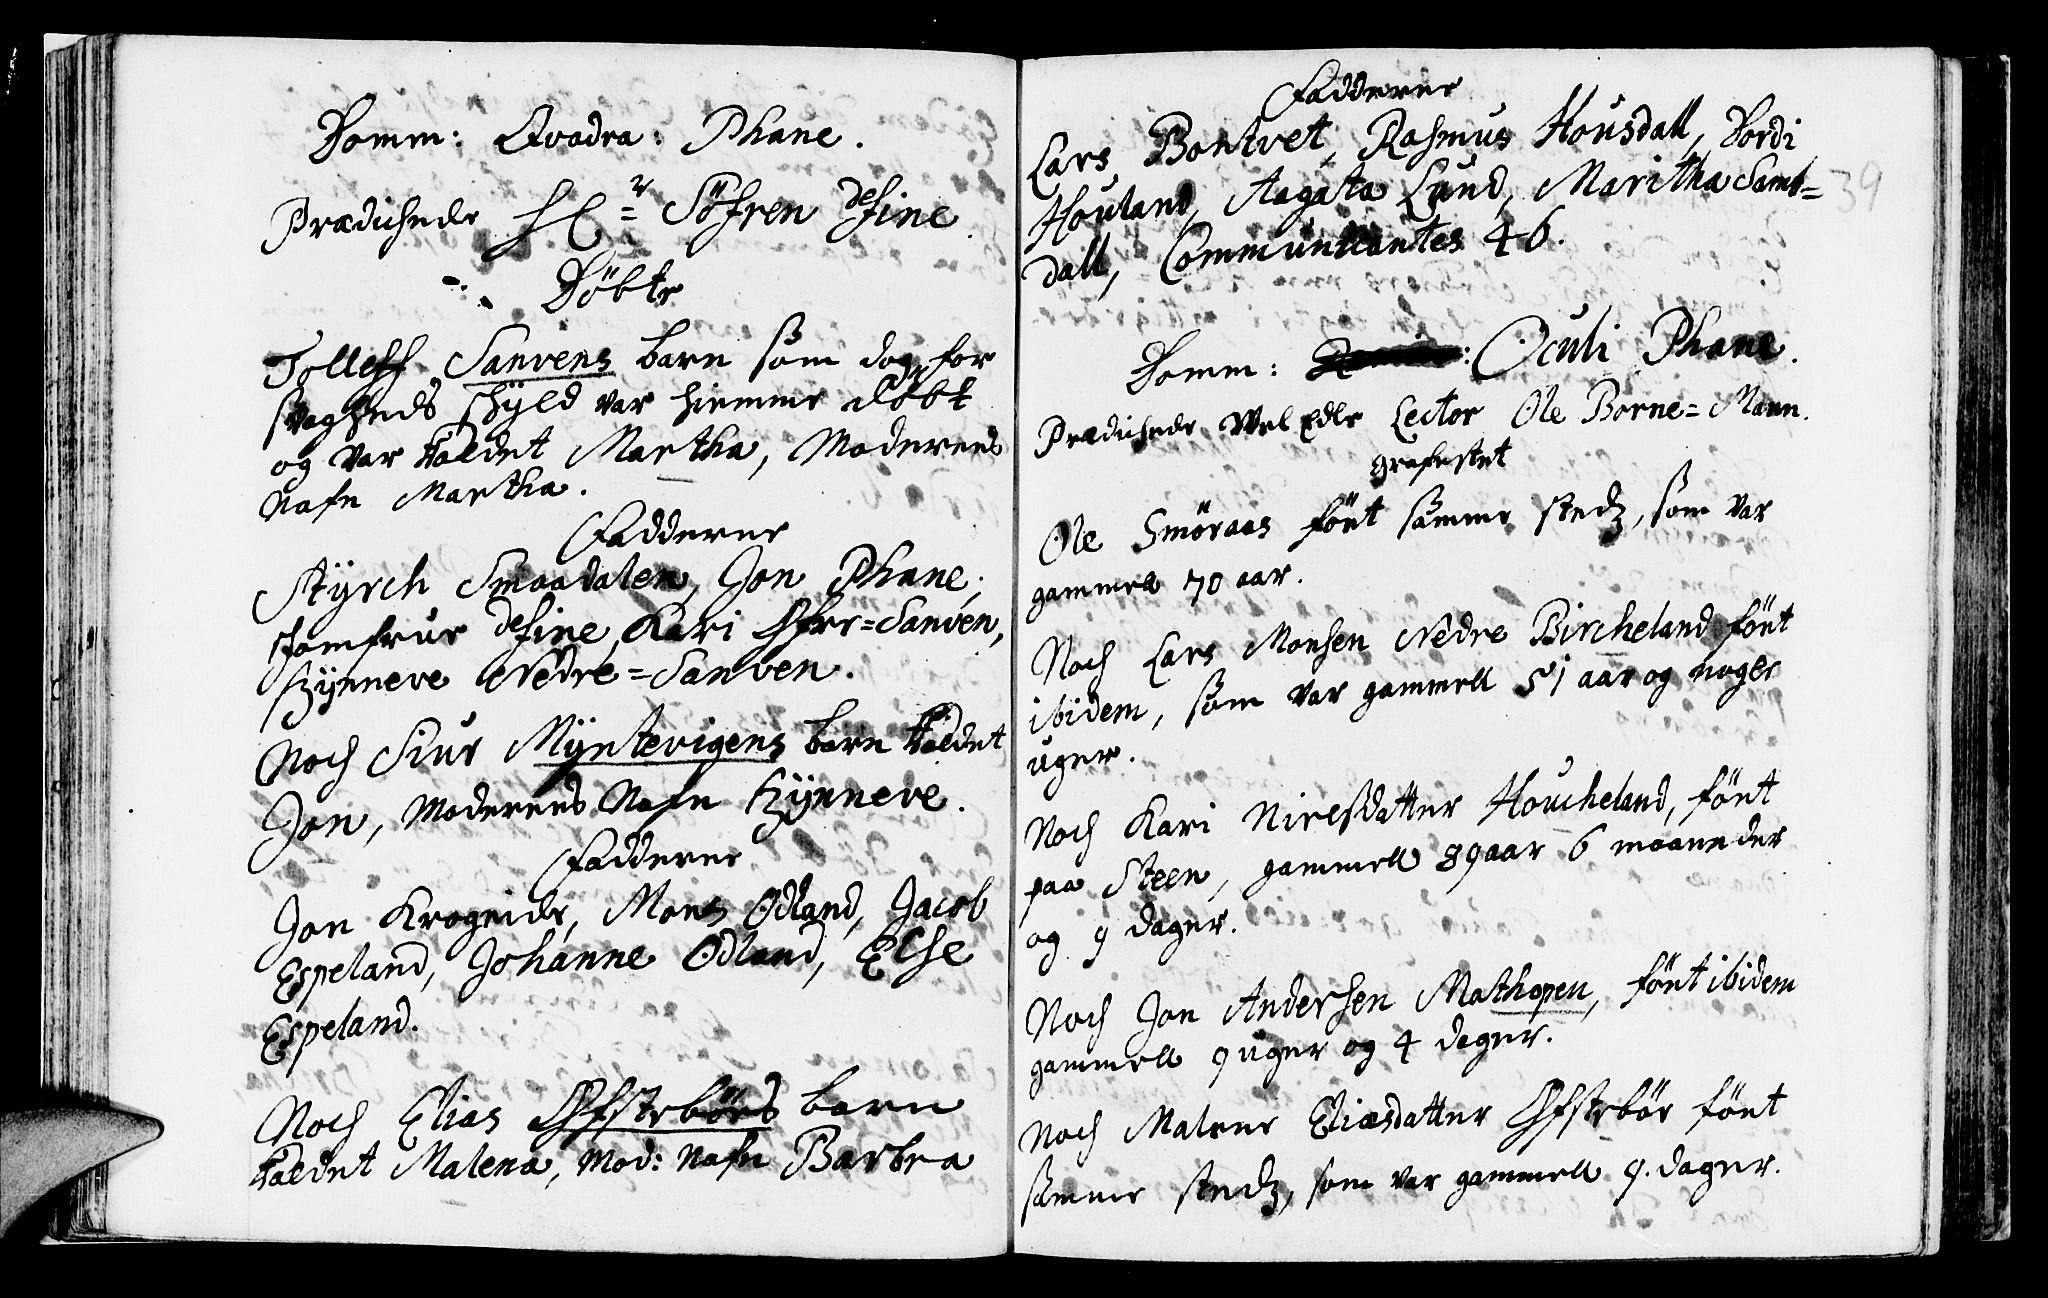 Domm: Qvadra: Phane.
Prædichede Hr Söfren de fine
Döbte
Tolleff Sanvens barn som dog for
svagheds skÿld var hiemme döbt
og var kaldet Martha, Moderens
Nafn Martha.
Fadderne
Stÿrch Smaadalen, Jon Phane,
Jomfrue de fine, Kari Öfre=Sanven,
Sÿnneve Nedre=Sanven.
Noch Siur Mÿntevigens barn kaldet
Jon, Moderens Nafn Sÿnneve.
Fadderne
Jon Krogeide, Mons Ødland, Jacob
Espeland, Johanne Ødland, Else
Espeland.
Noch Elias Øfstebörs barn
kaldet Malena, Mod: Nafn Barbra
39
Fadderne
Lars Bontvet, Rasmus Housdall, Dordi
Houland, Aagata Lund, Maritha Samb=
dall, Communicantes 46.
Domm: Oculi Phane.
Prædichede Vel Edle Lector Ole Borne=Mann.
grafestet
Ole Smøraas föut samme stedz, som var
gammell 70 aar.
Noch Lars Monsen Nedre Bircheland föut
ibidem, som var gammell 51 aar og nogle
uger.
Noch Kari Nielsdatter Houcheland, föut
paa Steen, gammell 89 aar 6 maaneder
og 9 dager.
Noch Jon Andersen Mathopen, föut ibidem
gammell 9 uger og 4 dager.
Noch Malene Eliasdatter Øfstebör föut
samme stedz, som var gammell 9. dager.